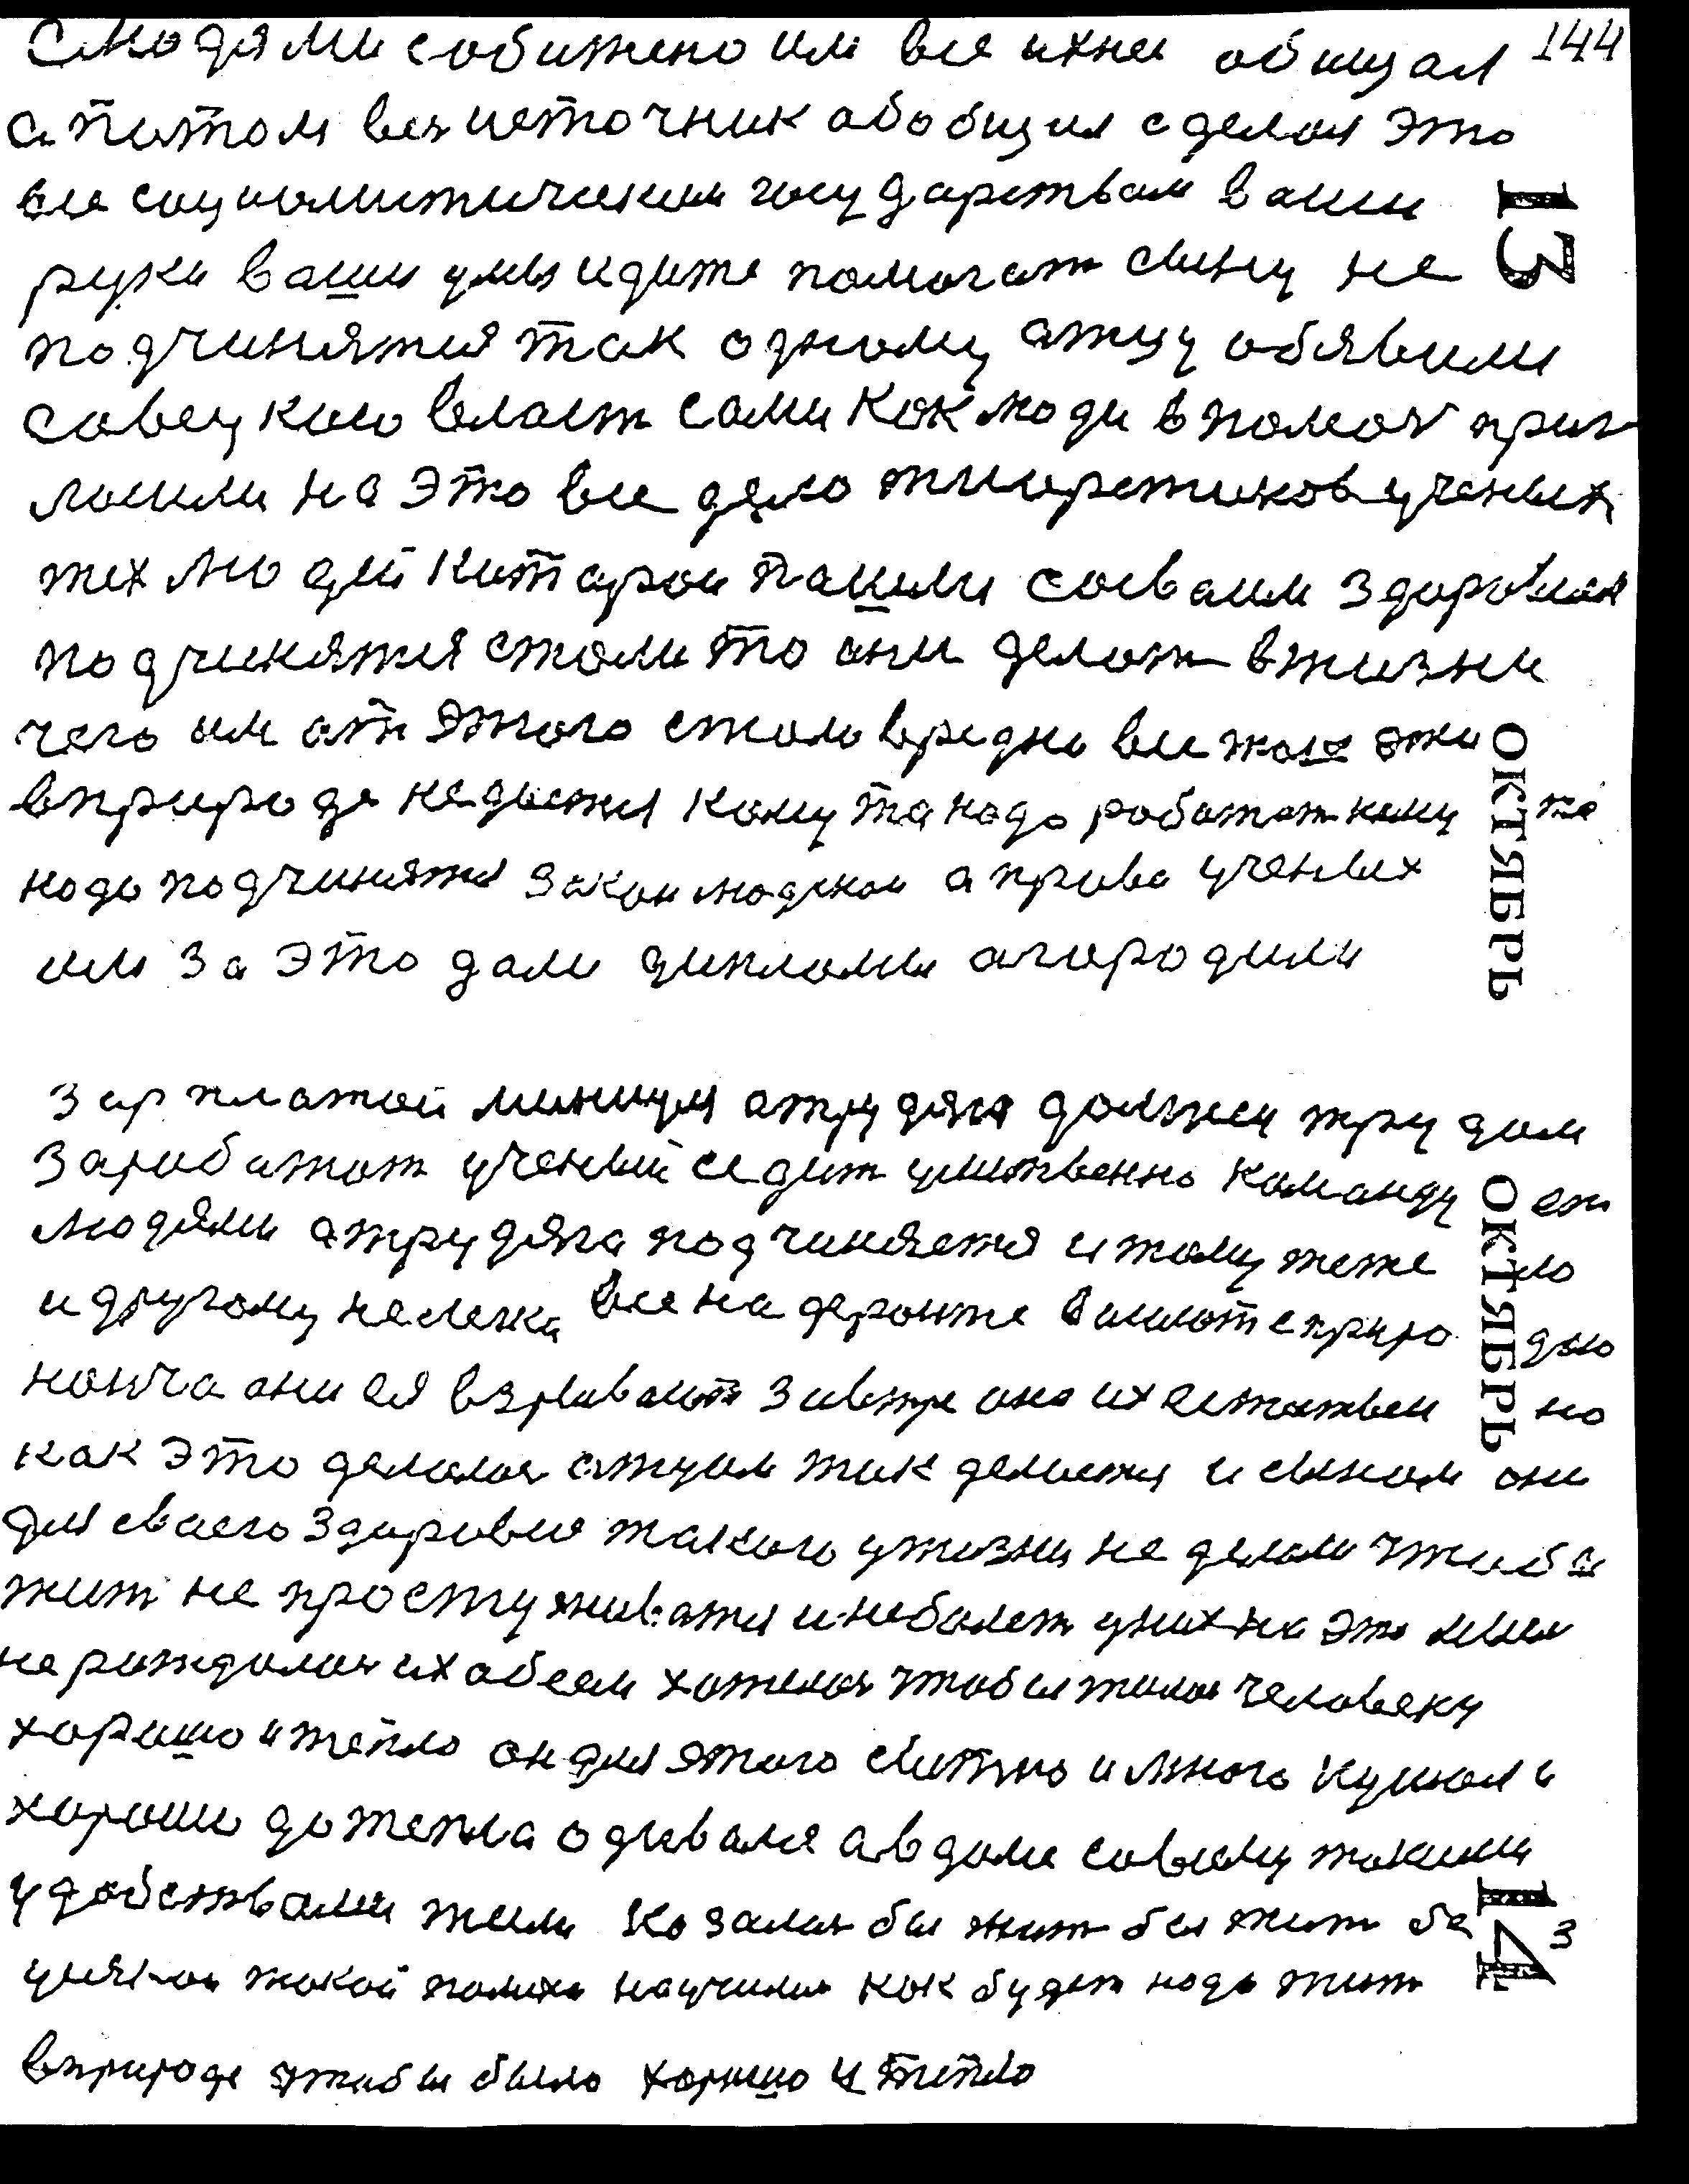 144
с людями собижено им все ихнее общал
а потом весь источник абобщил сделал это
все социолистическим государствам ваши
13
руки ваши умы идите помогат сыну не
подчинятия так одному атцу обявили
совецкою власт сами как люди в помоч приг
лосили на это все дело тиоретиков ученых
тех людей катарои пашли сосваим здоровиам
подчинятия стали то они делат в жизни
чего им ат этого стало вредно все жаш эти
в природе недается кому та надо работат кому та
надо подчинятия закон людскои а право ученых
им за это дали дипломы агородили
ОКТЯБРЬ
зарплатой миницум атрудяга должен трудом
заработат ученый седит умственно командует
людями атрудяга подчиняетия и тому тежело
и другому нелегка все на фронте ваюют с природою
нонча ани ея взрывают завтре она их естествено
ОКТЯБРЬ
как это делалос атцом так делается и сыном они
для сваего здоровия такого у жизни не делали чтобы
жит не простуживатия и неболет у них на это мысл
не рождалос их абеем хотелос чтобы жилос человеку
хорошо и тепло он для этого сытно и много кушал и
хорошо до тепла одевался а в доме совсему такими
удобствами жили казалос бы жит бы жит да
14
3
уняжои такой палихе научилис как будет надо жит
в природе чтобы было хорошо и тепло